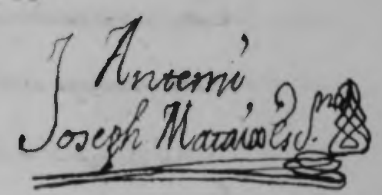 Antemi
Joseph Mataix